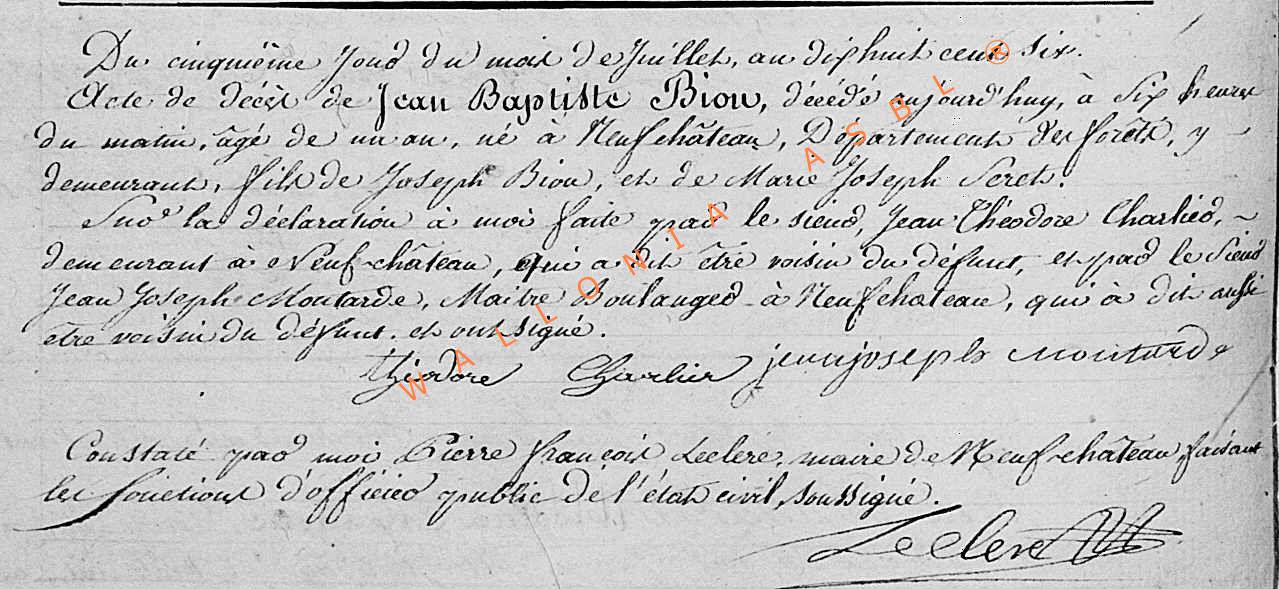 Du cinquième jour du mois de Juillet, an dix huit cent six.
Acte de décès de Jean Baptiste Biou, décédé aujourd'huy, à six heures
du matin, âgé de un an, né à Neufchâteau, Département des forêts, y
demeurant, fils de Joseph Biou, et de Marie Joseph Seret.
Sur la déclaration à moi faite par le sieur, Jean Théodore Charlier,
demeurant à Neuf-château, qui a dit être voisin du défunt, et par le Sieur
Jean Joseph Moutarde, Maitre Boulanger à Neufchateau, qui à dit aussi
etre voisin du défunt. et ont signé.
théodore Charlier jean joseph Moutarde
Constaté par moi Pierre françois Leclerc, maire de Neuf-château, faisant
les fonctions d'officier public de l'état civil, soussigné.
Leclerc
WALLONIA ASBL ®